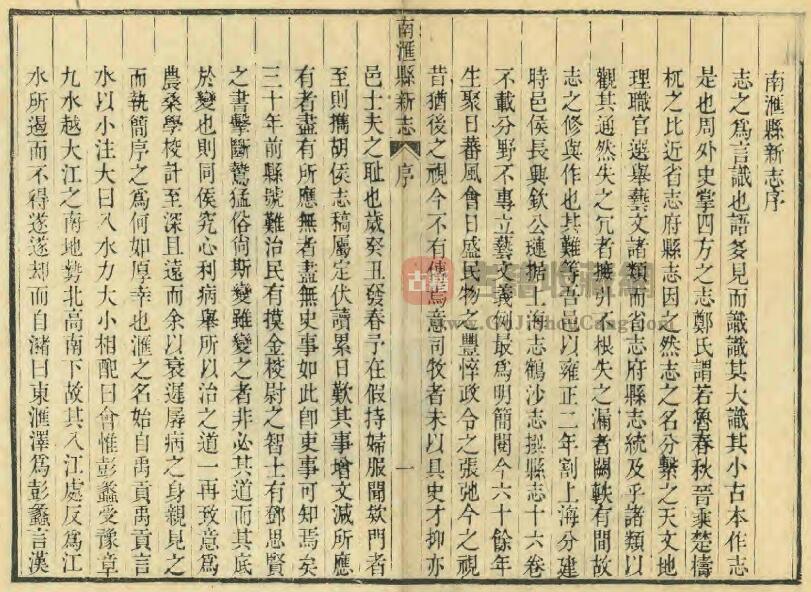 南滙縣新志序
志之爲言識也語多見而識識其大識其小古本作志
是也周外史掌四方之志鄭氏謂若魯春秋晉乘楚檮
杌之比近省志府縣志因之然志之名分繫之天文地
理職官選舉藝文諸類而省志府縣志統及乎諸類以
觀其通然失之冗者摭引不根失之漏者闕軼有間故
志之修與作也其難等吾邑以雍正二年割上海分建
時邑侯長興欽公璉據上海志鶴沙志撰縣志十六卷
不載分野不專立藝文義例最爲明簡閱今六十餘年
生聚日蕃風會日盛民物之豐悴政令之張弛今之視
昔猶後之視今不有傳焉意司牧者未以具史才抑亦
南滙縣新志 序 一
邑士夫之耻也歲癸丑發春予在假持婦服聞欸門者
至則攜胡侯志稿屬定伏讀累日歎其事增文減所應
有者盡有所應無者盡無史事如此卽吏事可知焉矣
三十年前縣號難治民有摸金校尉之智士有鄧思賢
之書擊斷鷙猛俗尙斯變雖變之者非必其道而其底
於變也則同侯究心利病舉所以治之道一再致意爲
農桑學校計至深且遠而余以衰遲孱病之身親見之
而執簡序之爲何如厚幸也滙之名始自禹貢禹貢言
水以小注大曰入水力大小相配曰會惟彭蠡受豫章
九水越大江之南地勢北高南下故其入江處反爲江
水所遏而不得遂遂却而自瀦曰東滙澤爲彭蠡言漢
古籍收藏網
www.GuJiShouCang.com